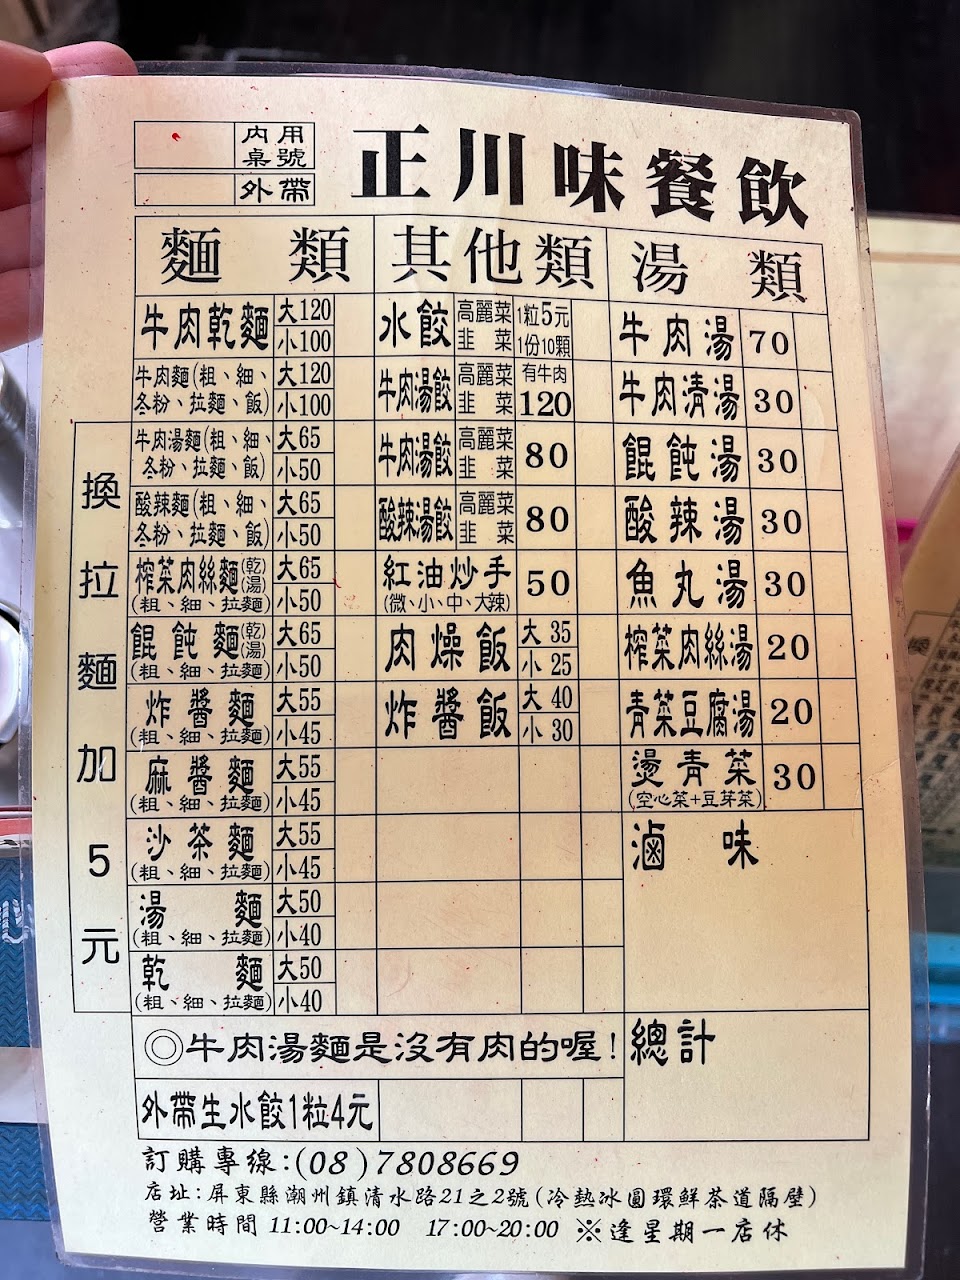 內用
桌號
外帶
正川味餐飲
麵類 其他類 湯類
牛肉乾麵 大120 小100
牛肉麵(粗、細、
冬粉、拉麵、飯) 大120 小100
換拉麵加5元
牛肉湯麵(粗、細、
冬粉、拉麵、飯) 大65 小50
酸辣麵(粗、細、
冬粉、拉麵、飯) 大65 小50
榨菜肉絲麵(乾)(湯)
(粗、細、拉麵) 大65 小50
餛飩麵(乾)(湯)
(粗、細、拉麵) 大65 小50
炸醬麵
(粗、細、拉麵) 大55 小45
麻醬麵
(粗、細、拉麵) 大55 小45
沙茶麵
(粗、細、拉麵) 大55 小45
湯麵
(粗、細、拉麵) 大50 小40
乾麵
(粗、細、拉麵) 大50 小40
水餃 高麗菜 韭菜 1粒5元 1份10顆
牛肉湯餃 高麗菜 韭菜 有牛肉 120
牛肉湯餃 高麗菜 韭菜 80
酸辣湯餃 高麗菜 韭菜 80
紅油炒手
(微、小、中、大辣) 50
肉燥飯 大35 小25
炸醬飯 大40 小30
牛肉湯 70
牛肉清湯 30
餛飩湯 30
酸辣湯 30
魚丸湯 30
榨菜肉絲湯 20
青菜豆腐湯 20
燙青菜
(空心菜+豆芽菜) 30
滷味
◎牛肉湯麵是沒有肉的喔!
總計
外帶生水餃1粒4元
訂購專線:(08)7808669
店址:屏東縣潮州鎮清水路21之2號(冷熱冰圓環鮮茶道隔壁)
營業時間 11:00~14:00 17:00~20:00 ※逢星期一店休